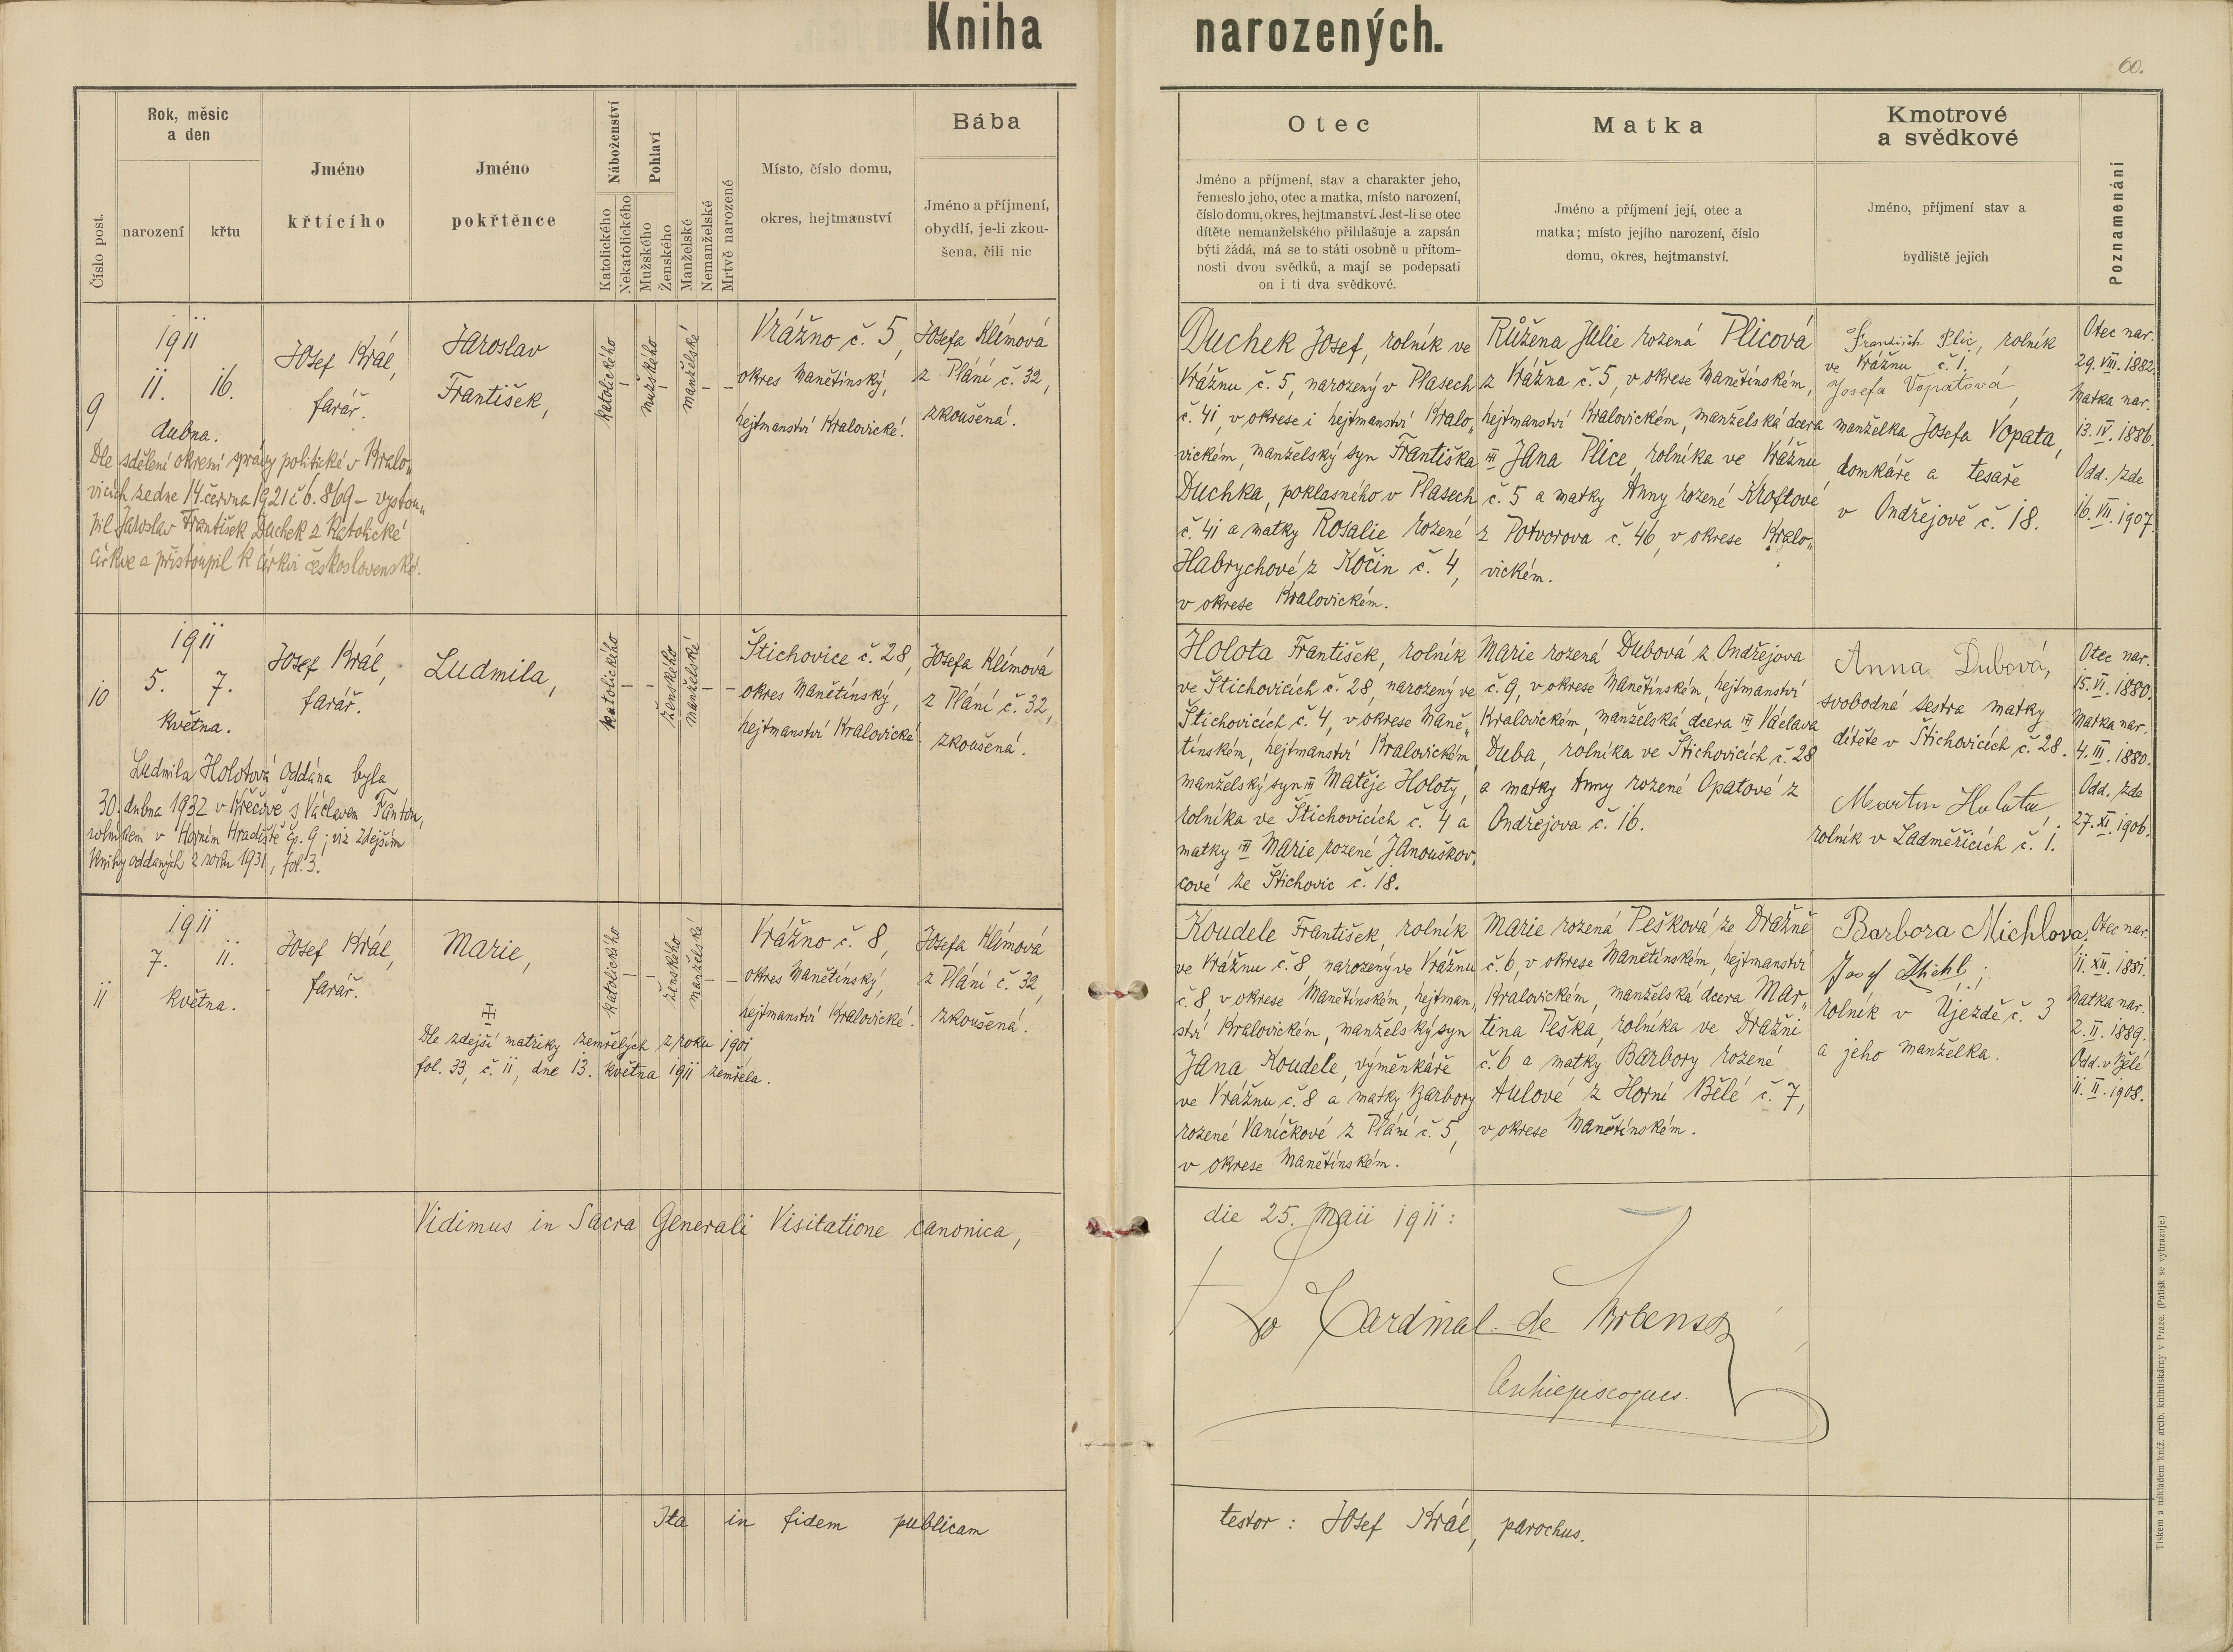 Kniha narozených.
60.
Číslo post.
Rok, měsíc
a den
narození
křtu
Jméno
křtícího
Jméno
pokřtěnce
Náboženství
Katolického
Nekatolického
Pohlaví
Mužského
Ženského
Manželské
Nemanželské
Mrtvě narozené
Místo, číslo domu,
okres, hejtmanství
Bába
Jméno a příjmení,
obydlí, je-li zkou-
šena, čili nic
Otec
Jméno a příjmení, stav a charakter jeho,
řemeslo jeho, otec a matka, místo narození,
číslo domu, okres, hejtmanství. Jest-li se otec
dítěte nemanželského přihlašuje a zapsán
býti žádá, má se to státi osobně u přítom-
nosti dvou svědků, a mají se podepsati
on i ti dva svědkové.
Matka
Jméno a příjmení její, otec a
matka; místo jejího narození, číslo
domu, okres, hejtmanství.
Kmotrové
a svědkové
Jméno, příjmení stav a
bydliště jejich
Poznamenání
9
1911
11. 16.
dubna.
Josef Král,
farář.
Jaroslav
František,
katolického
–
mužského
–
manželské
–
–
Vrážno č. 5,
okres Manětínský,
hejtmanství Kralovické.
Josefa Klímová
z Plání č. 32,
zkoušená.
Dle sdělení okresní správy politické v Kralo„
vicích ze dne 14. června 1921 č. 6.869 – vystou„
pil Jaroslav František Duchek z katolické
církve a přistoupil k církvi československé.
Duchek Josef, rolník ve
Vrážnu č. 5, narozený v Plasech
č. 41, v okrese i hejtmanství Kralo„
vickém, manželský syn Františka
Duchka, poklasného v Plasech
č. 41 a matky Rosalie rozené
Habrychové z Kočin č. 4,
v okrese Kralovickém.
Růžena Julie rozená Plicová
z Vrážna č. 5, v okrese Manětínském,
hejtmanství Kralovickém, manželská dcera
Jana Plice, rolníka ve Vrážnu
č. 5 a matky Anny rozené Kroftové
z Potvorova č. 46, v okrese Kralo„
vickém.
František Plic, rolník
ve Vrážnu č. 1,
Josefa Vopatová,
manželka Josefa Vopata,
domkáře a tesaře
v Ondřejově č. 18.
Otec nar.
29. VIII. 1882.
Matka nar.
13. IV. 1886.
Odd. zde
16. VII. 1907.
10
1911
5. 7.
května.
Josef Král,
farář.
Ludmila,
katolického
–
–
ženského
manželské
–
–
Štichovice č. 28,
okres Manětínský,
hejtmanství Kralovické.
Josefa Klímová
z Plání č. 32,
zkoušená.
Ludmila Holotová oddána byla
30. dubna 1932 v Křečově s Václavem
rolníkem v Horním Hradišti čp. 9; viz zdejším
knihy oddaných z roku 1931, fol. 3.
Holota František, rolník
ve Štichovicích č. 28, narozený ve
Štichovicích č. 4, v okrese Maně„
tínském, hejtmanství Kralovickém,
manželský syn Matěje Holoty,
rolníka ve Štichovicích č. 4 a
matky Marie rozené Janouškov„
cové ze Štichovic č. 18.
Marie rozená Dubová z Ondřejova
č. 9, v okrese Manětínském, hejtmanství
Kralovickém, manželská dcera Václava
Duba, rolníka ve Štichovicích č. 28
a matky Anny rozené Opatové z
Ondřejova č. 16.
Anna Dubová,
svobodná sestra matky
dítěte v Štichovicích č. 28.
Martin Holota,
rolník v Ladměřicích č. 1.
Otec nar.
15. VI. 1880.
Matka nar.
4. III. 1880.
Odd. zde
27. XI. 1906.
11
1911
7. 11.
května.
Josef Král,
farář.
Marie,
katolického
–
–
ženského
manželské
–
–
Vrážno č. 8,
okres Manětínský,
hejtmanství Kralovické.
Josefa Klímová
z Plání č. 32,
zkoušená.
Dle zdejší matriky zemřelých z roku 1901
fol. 33, č. 11, dne 13. května 1911 zemřela.
Koudele František, rolník
ve Vrážnu č. 8, narozený ve Vrážnu
č. 8, v okrese Manětínském, hejtman„
ství Kralovickém, manželský syn
Jana Koudele, výměnkáře
ve Vrážnu č. 8 a matky Barbory
rozené Vaníčkové z Plání č. 5,
v okrese Manětínském.
Marie rozená Pešková ze Dražně
č. 6, v okrese Manětínském, hejtmanství
Kralovickém, manželská dcera Mar„
tina Peška, rolníka ve Dražni
č. 6 a matky Barbory rozené
Aulové z Horní Bělé č. 7,
v okrese Manětínském.
Barbora Michlova,
Josef Michl,
rolník v Újezdě č. 3
a jeho manželka.
Otec nar.
11. XII. 1881.
Matka nar.
2. II. 1889.
Odd. v Bělé
11. II. 1908.
Vidimus in Sacra Generali Visitatione canonica, die 25. Maii 1911:
Cardinal de
Archiepiscopus.
Ita in fidem publicam testor: Josef Král, parochus.
Tiskem a nákladem kníž. arcib. knihtiskárny v Praze. (Patisk se vyhrazuje.)